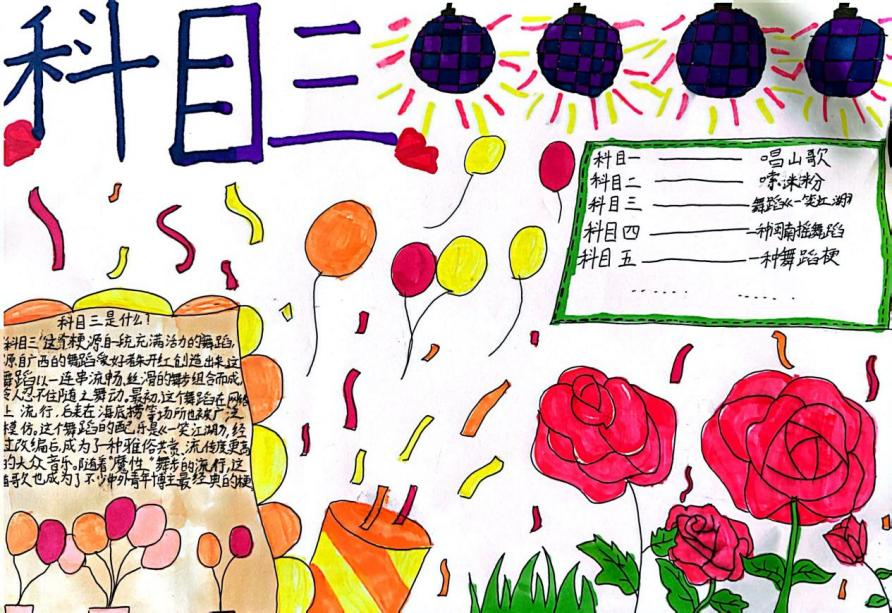 科目三
科目一 唱山歌
科目二 嗦米粉
科目三 舞蹈《一笑江湖》
科目四 一种闽南摇舞蹈
科目五 一种舞蹈梗
…… ……
科目三是什么？
科目三"这个梗源自一款充满活力的舞蹈,
源自广西的舞蹈爱好者朱开红创造出来这
舞蹈以一连串流畅、丝滑的舞步组合而成,
令人忍不住随之舞动。最初,这个舞蹈在网络
上流行,后来在海底捞等场所也被广泛
模仿。这个舞蹈的配乐是《一笑江湖》,经
过改编后,成为了一种雅俗共赏、流传度更高
的大众音乐。随着"魔性"舞步的流行,这
首歌也成为了不少中外青年博主最经典的梗